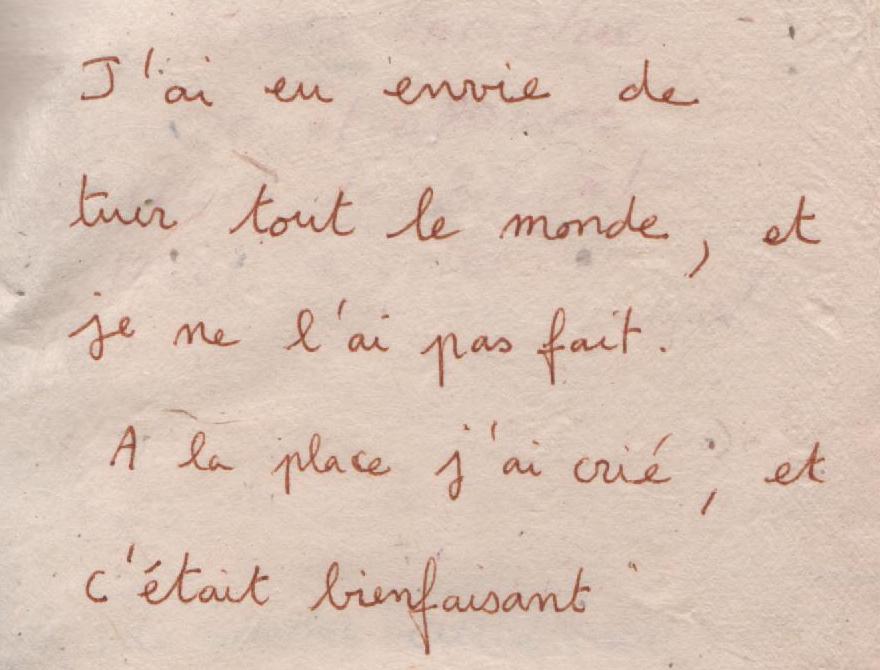 J'ai eu envie de
tuer tout le monde, et
je ne l'ai pas fait.
A la place j'ai crié, et
c'était bienfaisant